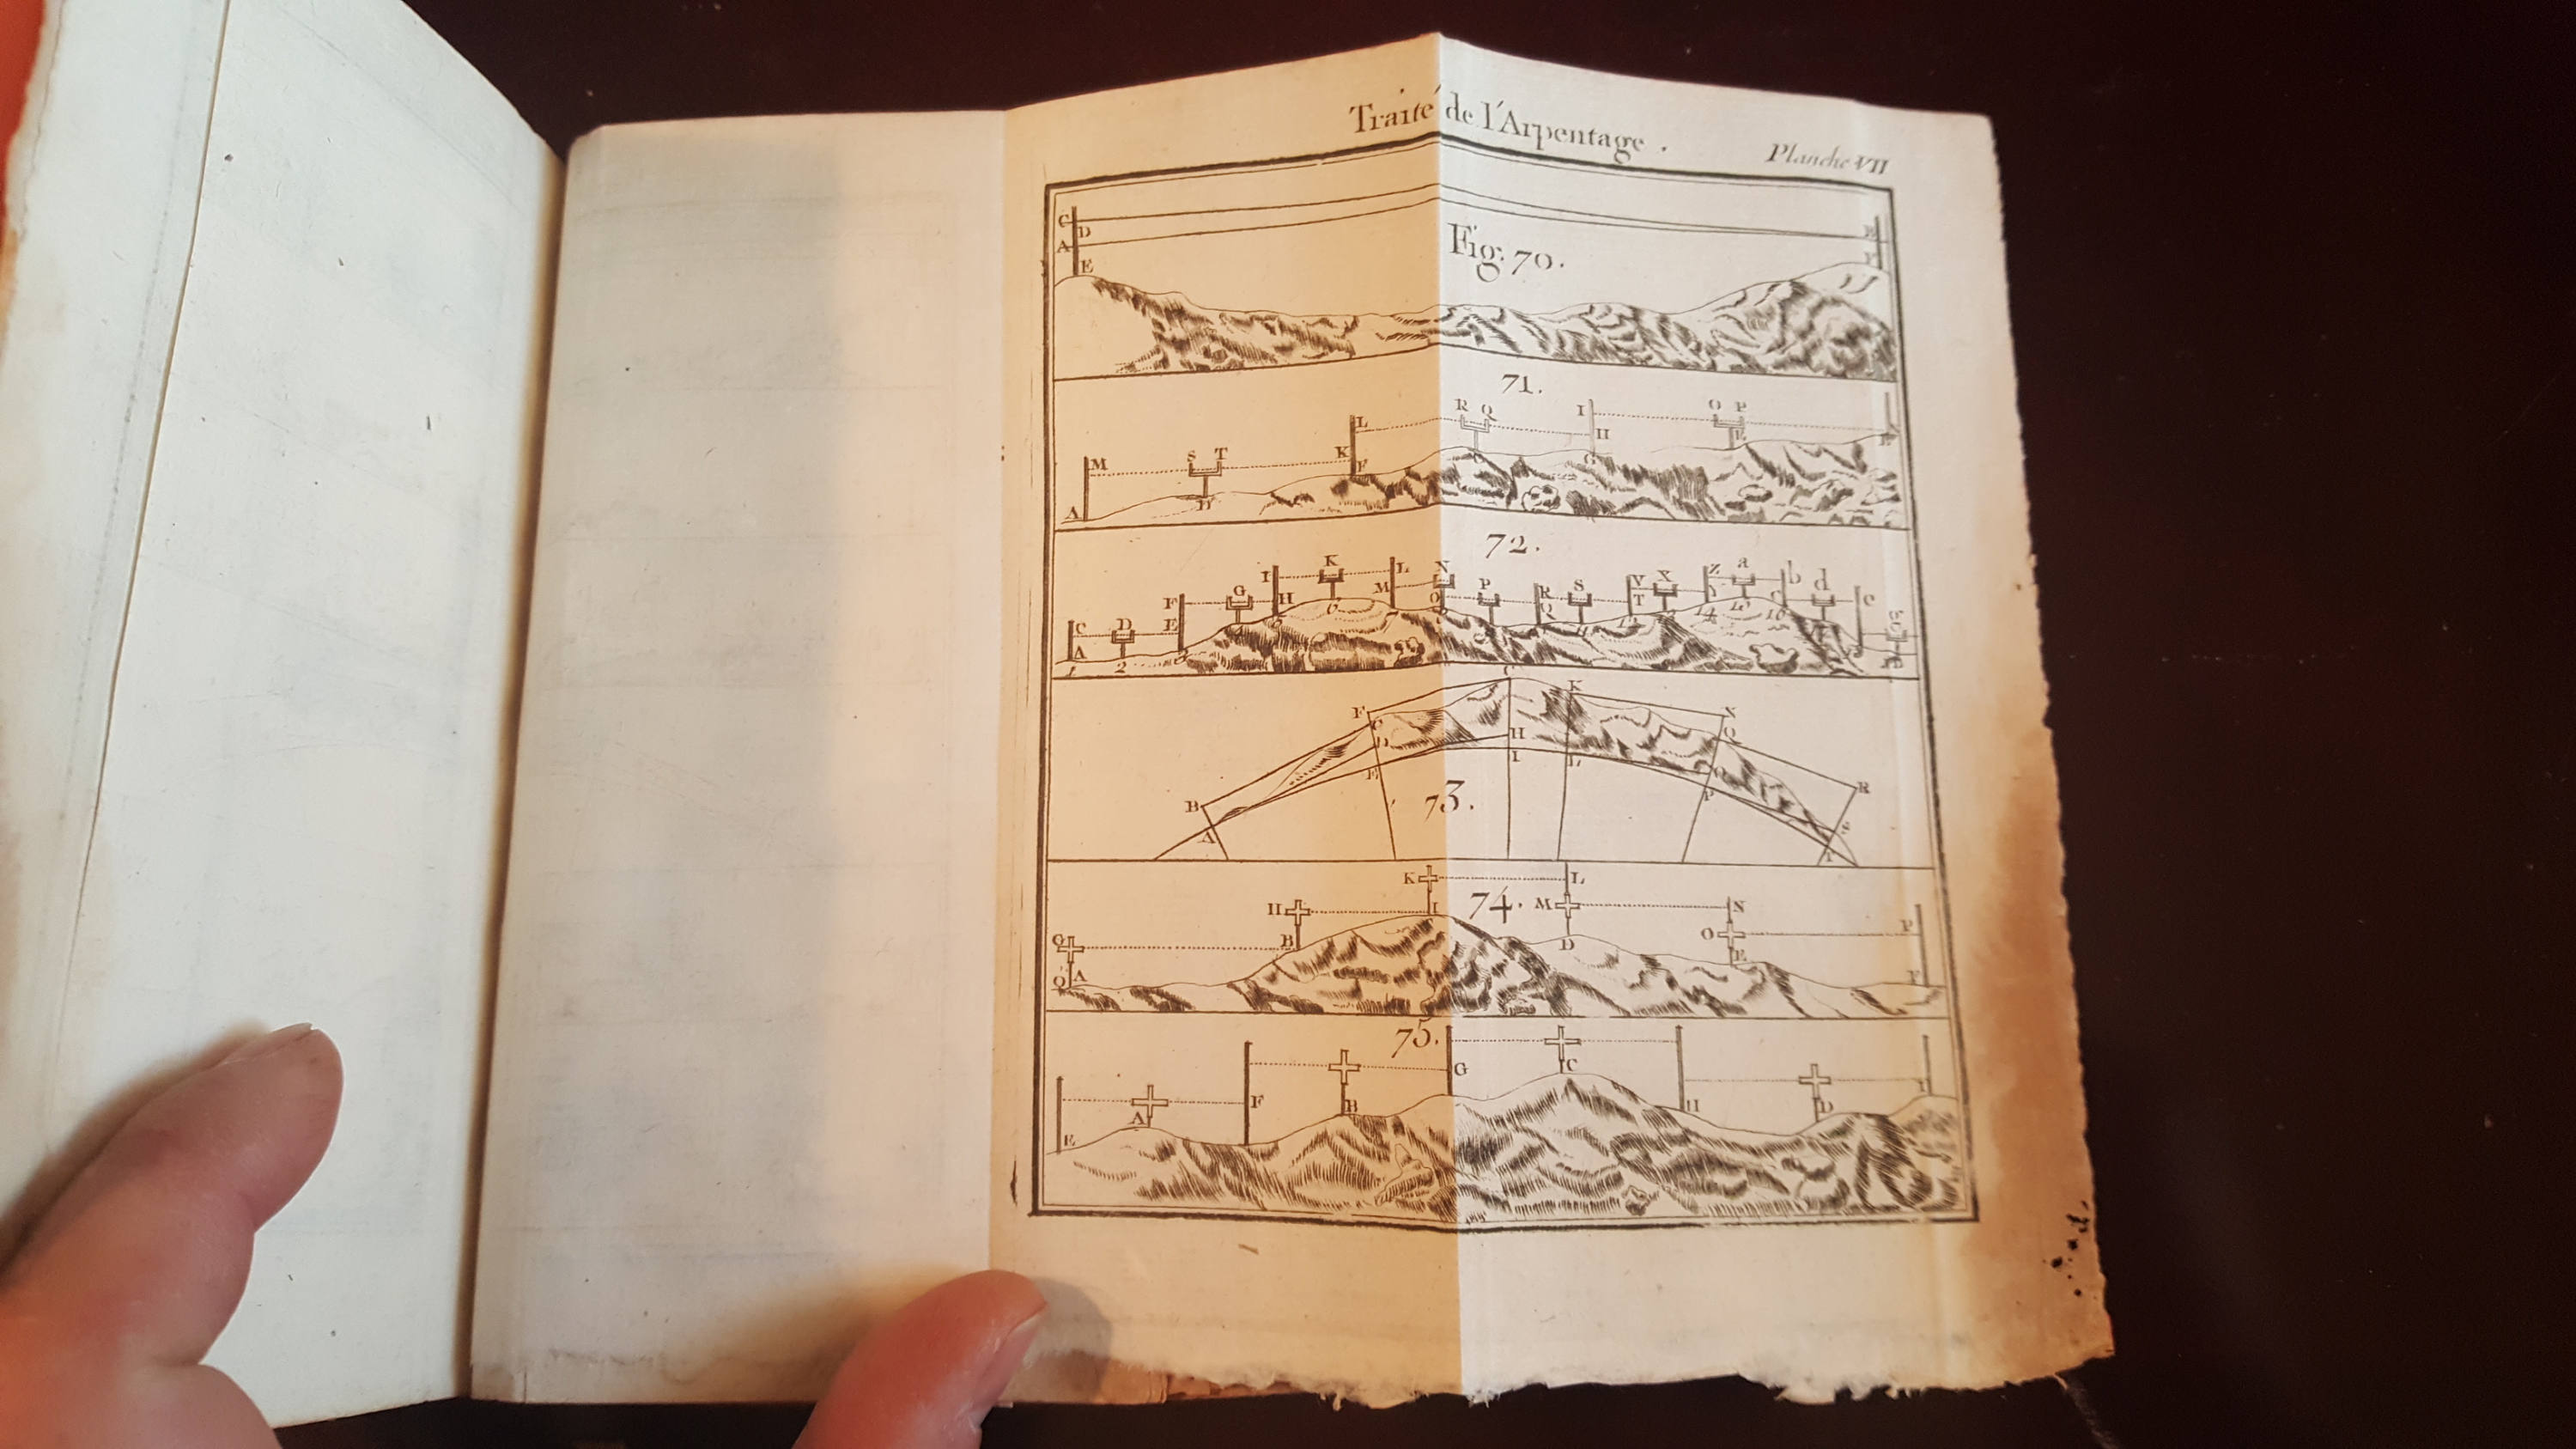 Traité de l'Arpentage.
Planche VII
Fig. 70.
C
D
A
E
71.
L
R Q
I
O P
H
E
M
S T
K
F
G
A
D
72.
I
K
L
N
Z a b d
F
G
H
M
O
P
R
S
V X
Q
T
C
D
E
A
1
2
3
C
K
F
N
H
I
L
E
B
R
P
A
73.
K
L
H
I
74.
M
N
G
B
D
O
P
E
Q
A
F
75.
G
C
F
A
B
H
D
I
E